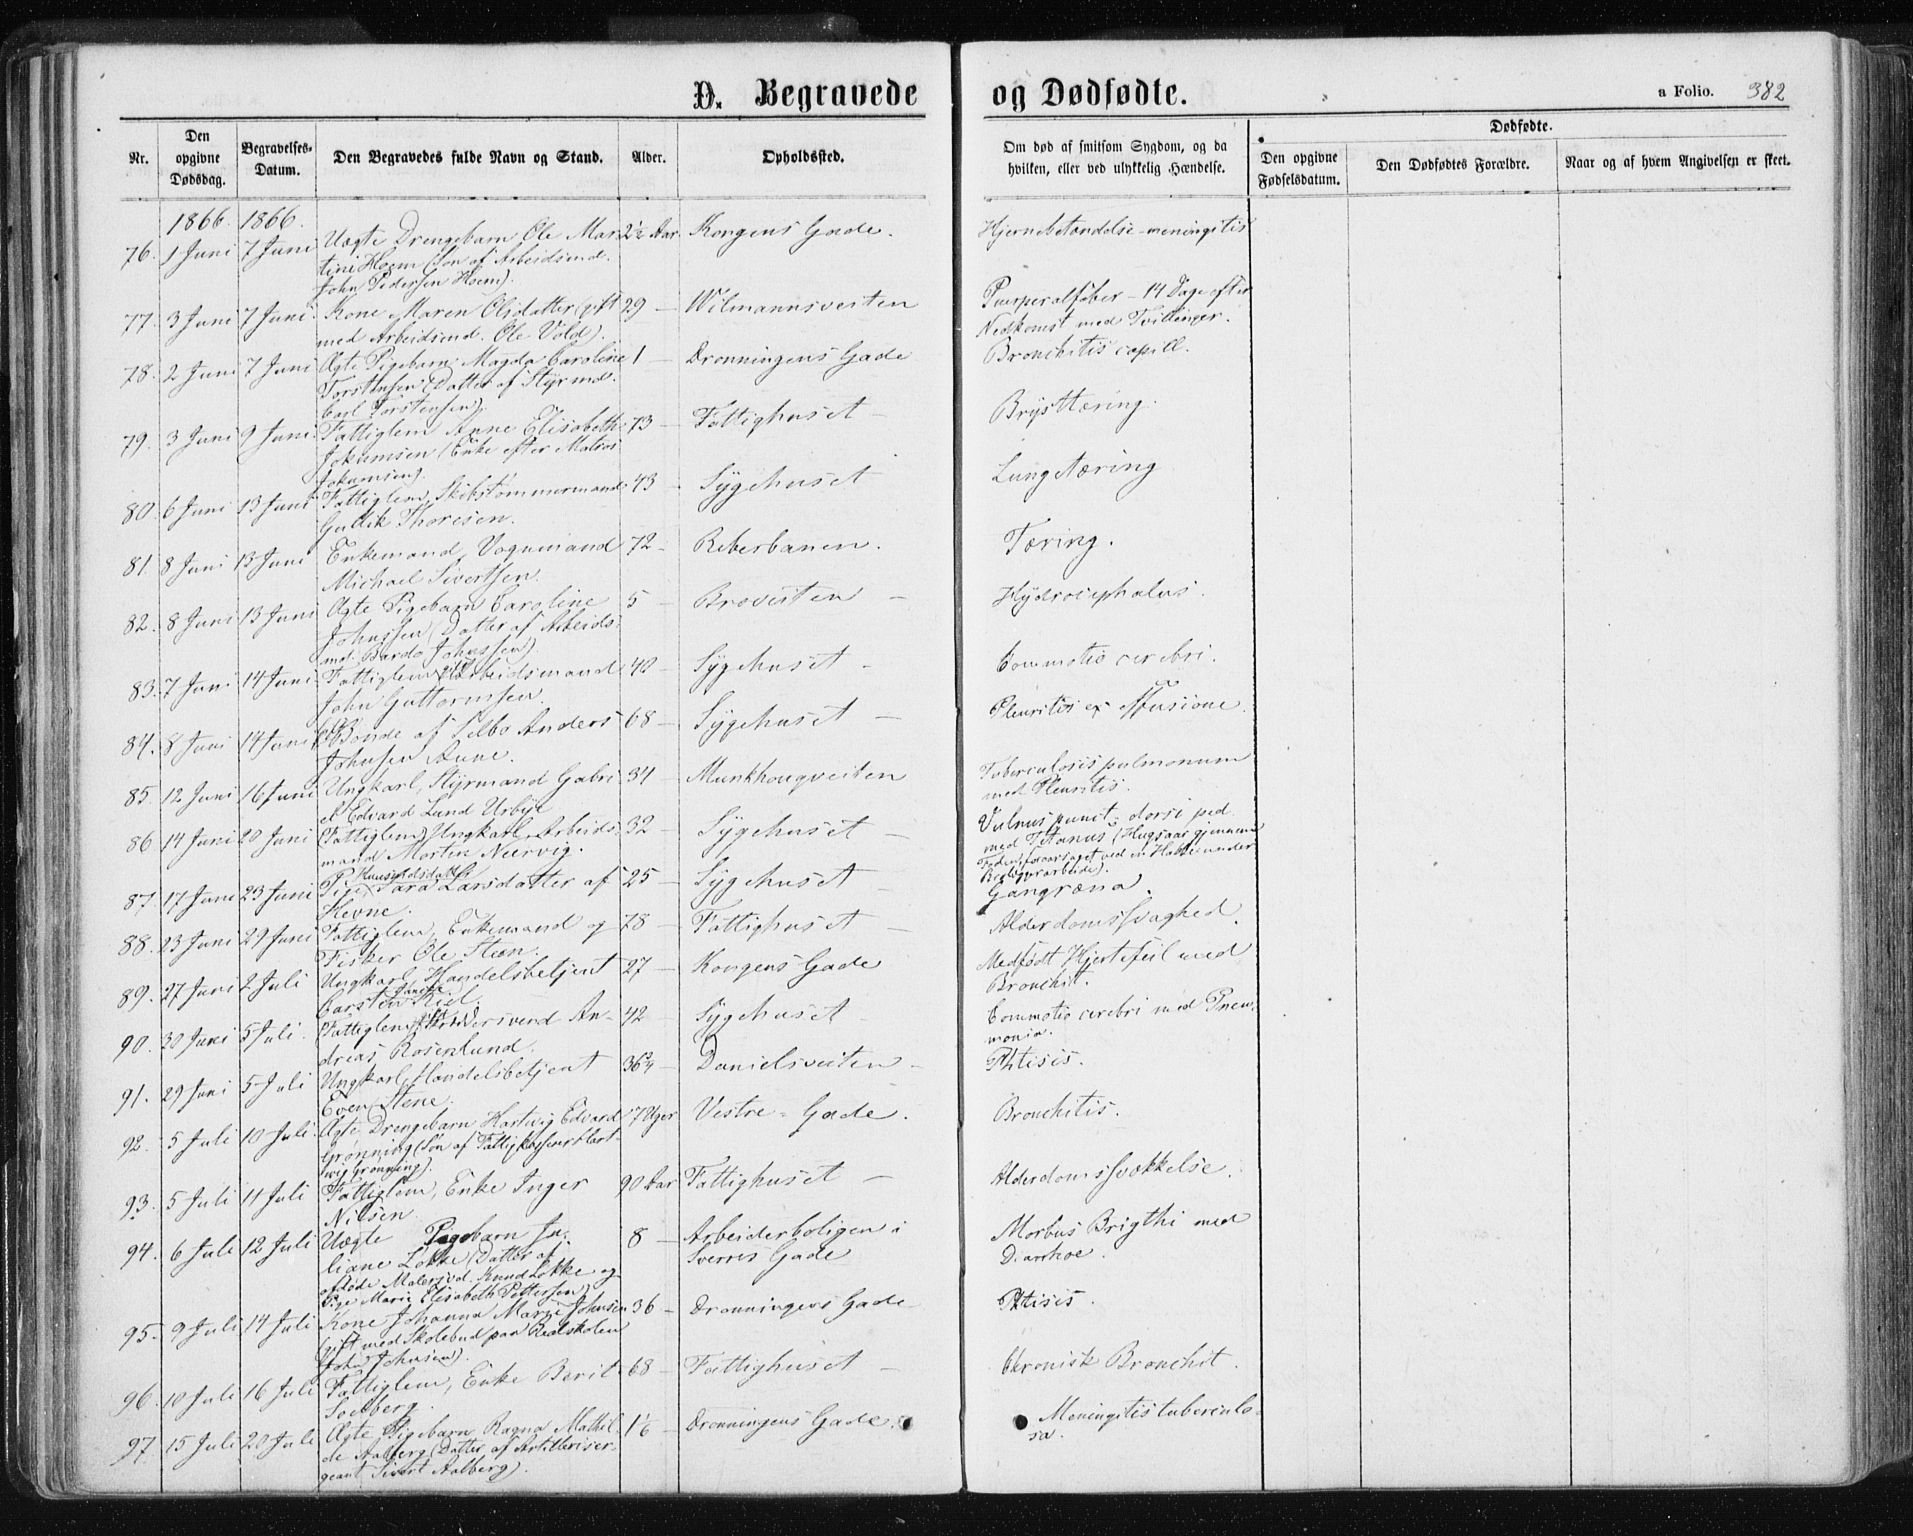 D. Begravede og Dødfødte.
a Folio. 382
Nr.
Den opgivne Dødsdag.
Begravelses-Datum.
Den Begravedes fulde Navn og Stand.
Alder.
Opholdssted.
Om død af smitsom Sygdom, og da hvilken, eller ved ulykkelig Hændelse.
Dødfødte.
Den opgivne Fødselsdatum.
Den Dødfødtes Forældre.
Naar og af hvem Angivelsen er skeet.
1866. 1866.
76. 1 Juni 7 Juni Uægte Drengebarn Ole Mar- 2½ Aar. Kongens Gade. Hjernebetændelse - meningitis
tini Hoem (Søn af Arbeidsmd.
John Pedersen Hoem).
77. 3 Juni 7 Juni Kone Maren Olsdatter (gift 29 — Wilmannsveiten Puerperalfeber - 14 Dage efter
med Arbeidsmd. Ole Vold). Nedkomst med Tvillinger.
78. 2 Juni 7 Juni Ægte Pigebarn Magda Caroline 1 — Dronningens Gade Bronchitis capill.
Torstensen (Datter af Styrmd.
Carl Torstensen).
79. 3 Juni 9 Juni Fattiglem Anne Elisabeth 73 — Fattighuset — Brysttæring.
Jokumsen (Enke efter Matros
Jokumsen).
80. 6 Juni 13 Juni Fattiglem, Skibstømmermand 43 — Sygehuset Lungetæring
Gullik Thoresen.
81. 8 Juni 13 Juni Enkemand, Vognmand 72 — Reberbanen. Tæring.
Michael Sivertsen.
82. 8 Juni 13 Juni Ægte Pigebarn Caroline 5 — Broveiten — Hydrocephalus.
Johnsen (Datter af Arbeids-
md. Bardo Johnsen).
83. 7 Juni 14 Juni Fattiglem, gift Arbeidsmand 40 — Sygehuset — Commotio cerebri.
John Guttormsen.
84. 8 Juni 14 Juni Bonde af Selbo Anders 68 — Sygehuset — Pleuritis ex effusione.
Johnsen Aune.
85. 12 Juni 16 Juni Ungkarl, Styrmand Gabri- 34 — Munkhougveiten Tuberculosis pulmonum
el Edvard Lund Urbye med Pleuritis.
86 14 Juni 20 Juni (Fattiglem) Ungkarl Arbeids- 32 — Sygehuset — Vulnus punct. dorsi ped.
mand Morten Nærvig. med Tetanus (Hugsaar gjennem
Foden foraarsaget ved en Hakke under
Bergværarbeide).
87. 17 Juni 23 Juni Pige Huusmdsdatter Sara Larsdatter af 25 — Sygehuset — Gangræna.
Hevne.
88. 23 Juni 29 Juni Fattiglem, Enkemand og 78 — Fattighuset — Alderdomssvaghed.
Fisker Ole Steen.
89. 27 Juni 2 Juli Ungkarl, Handelsbetjent 27 — Kongens Gade Medfødt Hjertefeil med
Carsten Riel. Bronchit.
90. 30 Juni 5 Juli. (Fattiglem) gift svend An- 42 — Sygehuset — Commotio cerebri med Pneu-
dreas Rosenlund. monia.
91. 29 Juni 5 Juli Ungkarl, Handelsbetjent 36¾ — Danielsveiten — Phtisis.
Even Stene.
92. 5 Juli 10 Juli. Ægte Drengebarn Hartvig Edvard 7 Uger Vestre-Gade. Bronchitis.
Grønning (Søn af Fattigkasserer Hart-
wig Grønning).
93. 5 Juli 11 Juli Fattiglem, Enke Inger 90 Aar Fattighuset — Alderdomssvækkelse.
Nilsen
94. 6 Juli 12 Juli Uægte Pigebarn Ju- 8 — Arbeiderboligen i Morbus Brigthi med
liane Løkke (Datter af Sverres Gade Diarrhoe.
afdøde Malersvd. Knud Løkke og
Pige Marie Elisabeth Pettersen)
95. 9 Juli 14 Juli Kone Johanna Marie Johnsen 36 — Dronningens Gade — Phtisis.
(gift med Skolebud paa Realskolen
John Johnsen).
96. 10 Juli 16 Juli Fattiglem, Enke Berit 68 — Fattighuset — Chronisk Bronchit.
Soelberg.
97. 15 Juli 20 Juli Ægte Pigebarn, Ragna Mathil- 1⅙ — Dronningens Gade. Meningitis tuberculo-
de Aalberg (Datter af Artilleriser- sa.
geant Sivert Aalberg).